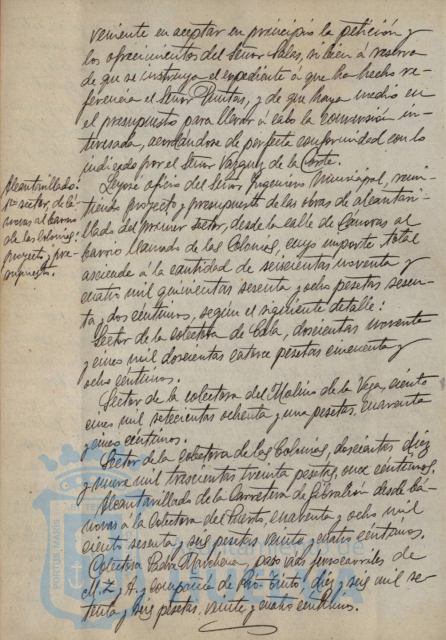 veniente en aceptar en principio la petición y
los ofrecimientos del Señor Salas, si bien á reserva
de que se instruya el expediente á que ha hecho re-
ferencia el Señor Pinillas, y de que haya medio en
el presupuesto para llevar á cabo la conversión in-
teresada, acordándose de perfecta conformidad con lo
indicado por el Señor Vazquez de la Corte.
Leyose oficio del Señor Ingeniero Municipal, remi-
tiendo proyecto y presupuesto de las obras de alcantari-
llado del primer sector, desde la calle de Cánovas al
barrio llamado de las Colonias, cuyo importe total
asciende á la cantidad de seiscientas noventa y
cuatro mil quinientas sesenta y ocho pesetas sesen-
ta y dos céntimos, según el siguiente detalle:
Sector de la colectora de Cala, doscientas noventa
y cinco mil doscientas catorce pesetas cincuenta y
ocho céntimos.
Sector de la colectora del Molino de la Vega, ciento
once mil setecientas ochenta y una pesetas, cuarenta
y cinco céntimos.
Sector de la colectora de las Colonias, doscientas diez
y nueve mil trescientas treinta pesetas, once céntimos.
Alcantarillado de la Carretera de Gibraleón desde Cá-
novas á la Colectora del Puerto, cuarenta y ocho mil
ciento sesenta y seis pesetas veinte y cuatro céntimos.
Colectora Padre Marchena, paso vías ferrocarriles de
M. Z. A. y Compañía de Rio-Tinto, diez y seis mil se-
tenta y seis pesetas, veinte y cuatro céntimos.
Alcantarillado:
1er sector, de Cá-
novas al barrio
de las Colonias:
proyecto y pre-
supuesto.
PORTUS MARIS
Ayuntamiento de